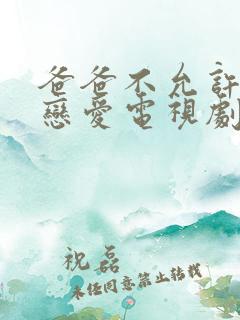 爸爸不允許
戀愛電視劇
祝磊
未经同意禁止转载